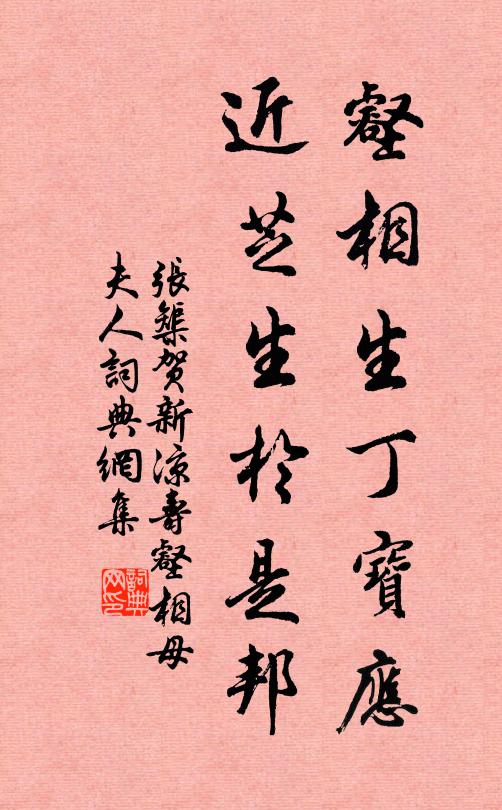 壑相生丁寶應
近芝生於是邦
張榘賀新涼壽壑相母
夫人詞典網集
詞典网印